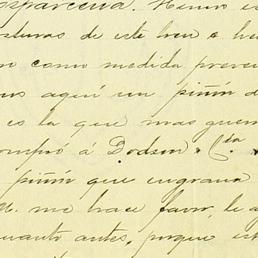 esparcena. Hemos
osturas de este tren a
como medida preve
ous aquí un piñón d
es la que mas guer
compró á Dodson & Cía.
piñón que engrana
M. me hace favor, le a
cuanto antes, porque est